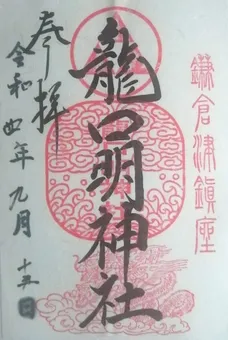 鎌倉津鎮座
龍口明神社
奉拝
令和四年九月十五日